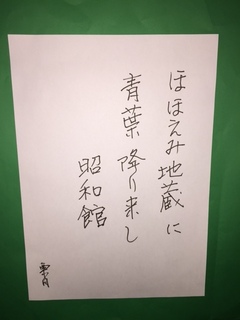 ほほえみ地蔵に
青葉降り来し
昭和館